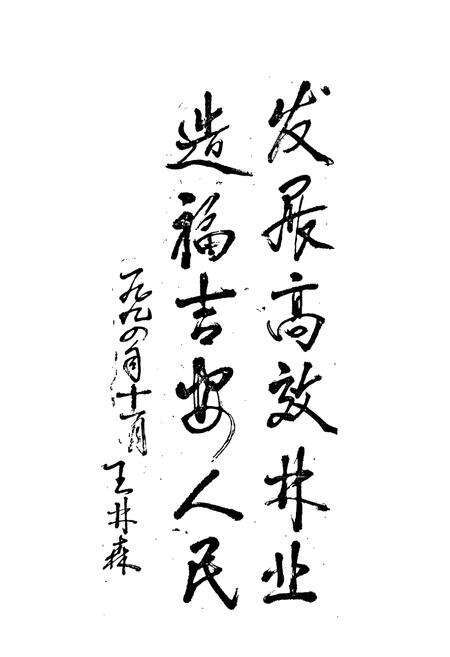 发展高效林业
造福吉安人民
一九九四年十一月
王林森